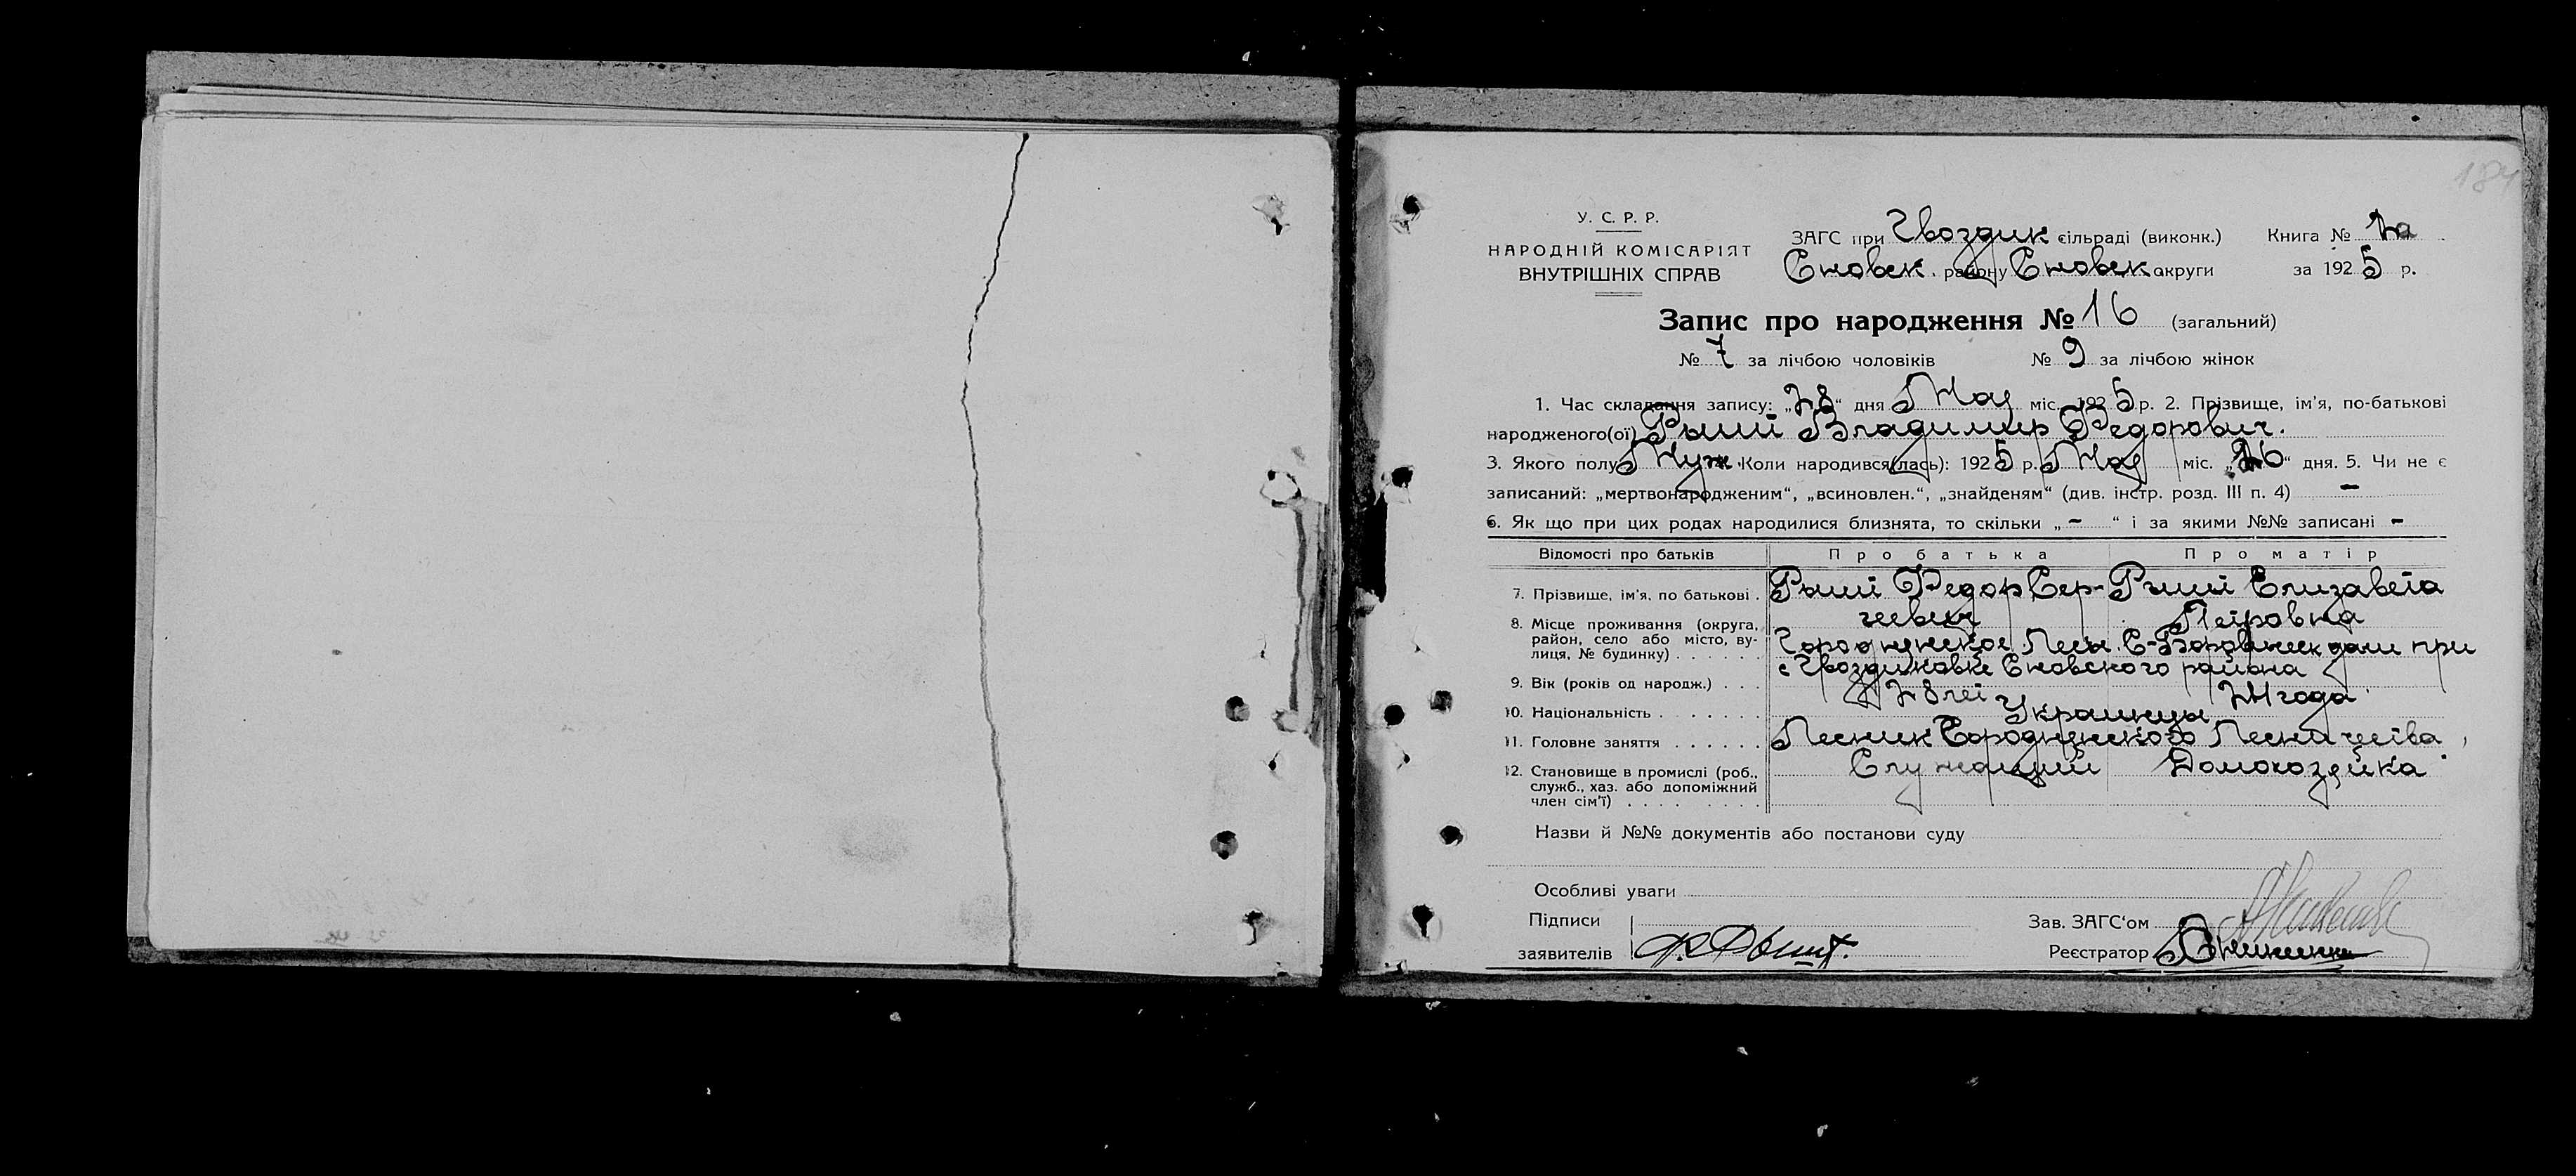 184
У. С. Р. Р.
НАРОДНІЙ КОМІСАРІЯТ
ВНУТРІШНІХ СПРАВ
ЗАГС при Гвоздик сільраді (виконк.) Книга № 2а
Сновск. району Сновск округи за 1925 р.
Запис про народження № 16 (загальний)
№ 7 за лічбою чоловіків № 9 за лічбою жінок
1. Час складання запису: „28“ дня Мая міс. 1925 р. 2. Прізвище, ім'я, по-батькові
народженого(ої) Рыший Владимир Федорович.
3. Якого полу Муж. Коли народився(лась): 1925 р. Мая міс. „26“ дня. 5. Чи не є
записаний: „мертвонародженим“, „всиновлен.“, „знайденям“ (див. інстр. розд. III п. 4) –
6. Як що при цих родах народилися близнята, то скільки „ – “ і за якими №№ записані –
Відомості про батьків Про батька Про матір
7. Прізвище, ім'я, по батькові . Рыший Федор Сер- Рыший Елизавета
геевич Петровна
8. Місце проживання (округа,
район, село або місто, ву-
лиця, № будинку) . . . . . . Городнянское Лесн. при
с Гвоздиковке Сновского района
9. Вік (років од народж.) . . . 28 лет 24 года
10. Національність . . . . . . . Украинцы
11. Головне заняття . . . . . . Лесник Городнянского Лесничества
12. Становище в промислі (роб., Служащий Домохозяйка
служб., хаз. або допоміжний
член сім'ї) . . . . . . . . .
Назви й №№ документів або постанови суду
Особливі уваги
Підписи Зав. ЗАГС'ом
заявителів Реєстратор